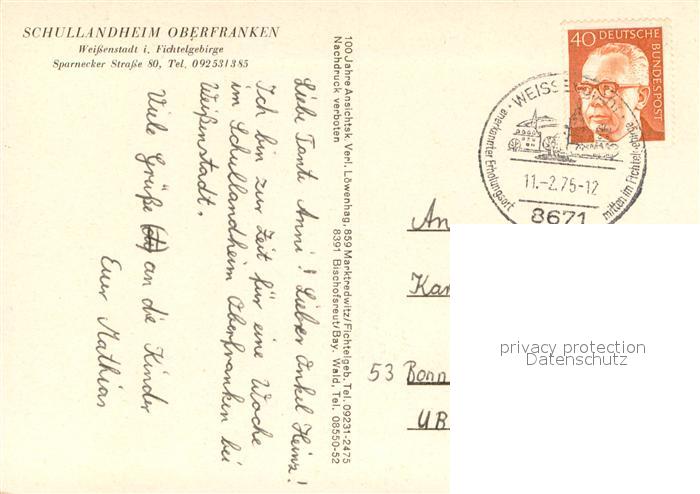 SCHULLANDHEIM OBERFRANKEN
Weißenstadt i. Fichtelgebirge
Sparnecker Straße 80, Tel. 092531385
Liebe Tante Anni! Lieber Onkel Heinz!
Ich bin zur Zeit für eine Woche
im Schullandheim Oberfranken bei
Weißenstadt.
Viele Grüße an die Kinder
Euer Mathias
100 Jahre Ansichtsk. Verl. Löwenhag, 859 Marktredwitz/Fichtelgeb. Tel. 09231-2475
Nachdruck verboten 8391 Bischofsreut/Bay. Wald, Tel. 08550-52
40 DEUTSCHE
BUNDESPOST
WEISSE
anerkannter Erholungsort
mitten im Fichtelgebirge
11.-2.75-12
8671
An
Kar
53 Bonn
UB
privacy protection
Datenschutz